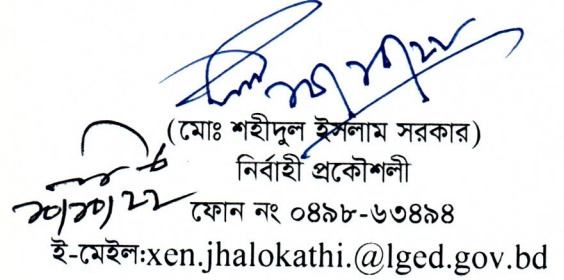 (মোঃ শহীদুল ইসলাম সরকার)
নির্বাহী প্রকৌশলী
ফোন নং ০৪৯৮-৬৩৪৯৪
ই-মেইল:xen.jhalokathi.@lged.gov.bd